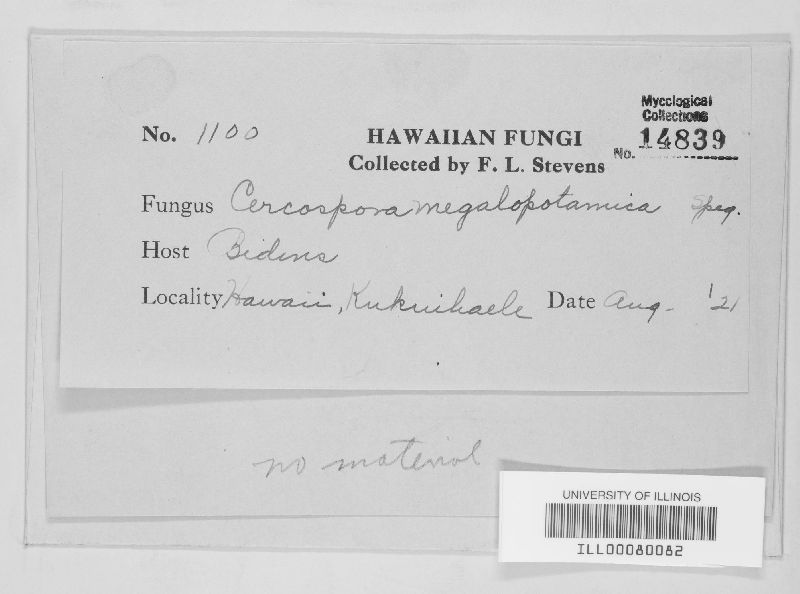 Mycological
Collections
No. 14839
No. 1100
HAWAIIAN FUNGI
Collected by F. L. Stevens
Fungus Cercospora megalopotamica Speg.
Host Bidens
Locality Hawaii, Kukuihaele Date Aug. '21
no material
UNIVERSITY OF ILLINOIS
ILL00080082